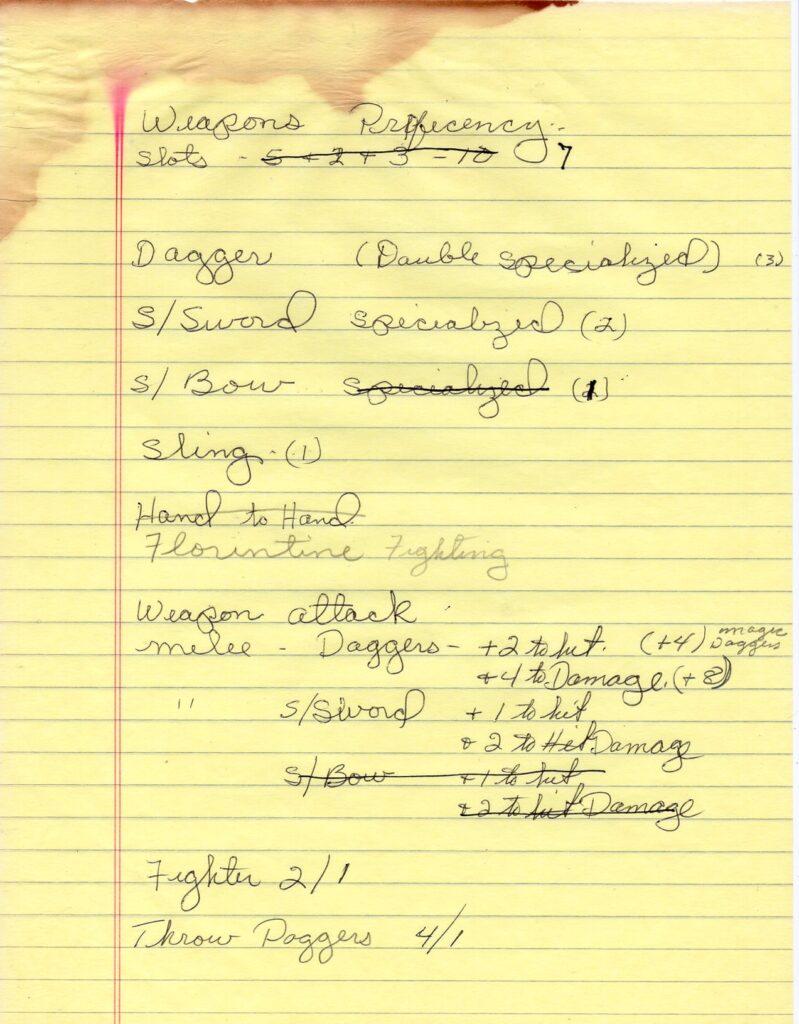 Weapons Profficency
Slots - 5 + 2 + 3 - 10 7
Dagger (Double specialized) (3)
S/Sword specialized (2)
S/Bow specialized (1)
Sling - (1)
Hand to Hand
Florentine Fighting
Weapon attack
melee - Daggers - +2 to hit. (+4) magic Daggers
+4 to Damage. (+8)
" S/Sword +1 to hit
+2 to Hit Damage
S/Bow +1 to hit
+2 to hit Damage
Fighter 2/1
Throw Daggers 4/1